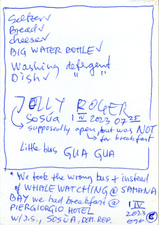 Seltzer ✓
Bread ✓
cheese ✓
BIG WATER BOTTLE ✓
Washing detergent
Dish ✓ " "
JOLLY ROGER
SOSÚA 1 IV 2023
supposedly open, but was NOT
for breakfast
Little bus GUA GUA
* We took the wrong bus & instead
of WHALE WATCHING @ SAMANA
BAY we had breakfast @
PIERGIORGIO HOTEL
SOSÚA, DOM. REP.
1 IV
2023